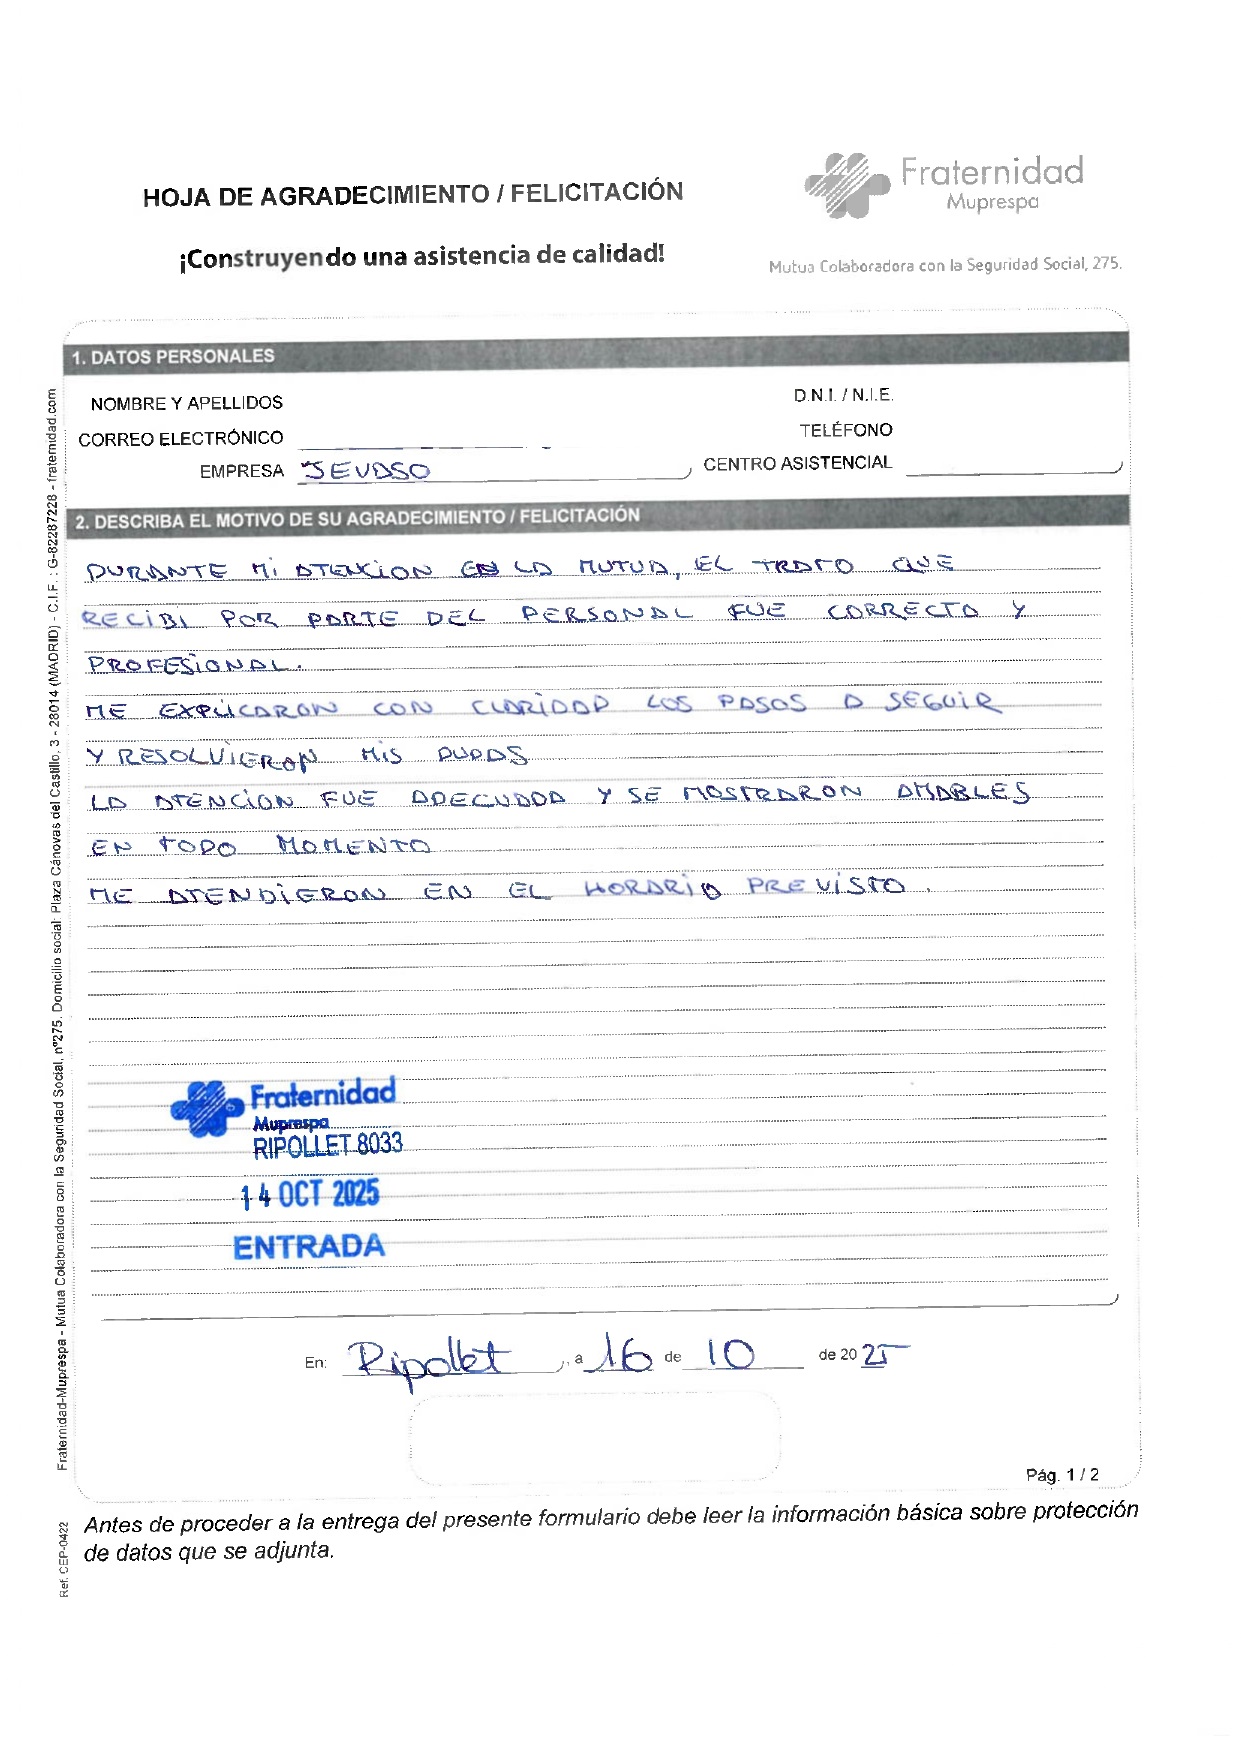 HOJA DE AGRADECIMIENTO / FELICITACIÓN
¡Construyendo una asistencia de calidad!
Fraternidad
Muprespa
Mutua Colaboradora con la Seguridad Social, 275.
1. DATOS PERSONALES
NOMBRE Y APELLIDOS
D.N.I. / N.I.E.
CORREO ELECTRÓNICO
TELÉFONO
EMPRESA JEVASO
CENTRO ASISTENCIAL
2. DESCRIBA EL MOTIVO DE SU AGRADECIMIENTO / FELICITACIÓN
DURANTE MI ATENCION EN LA MUTUA, EL TRATO QUE
RECIBI POR PARTE DEL PERSONAL FUE CORRECTO Y
PROFESIONAL.
ME EXPLICARON CON CLARIDAD LOS PASOS A SEGUIR
Y RESOLVIERON MIS DUDAS
LA ATENCION FUE ADECUADA Y SE MOSTRARON AMABLES
EN TODO MOMENTO
ME ATENDIERON EN EL HORARIO PREVISTO.
Fraternidad
Muprespa
RIPOLLET 8033
14 OCT 2025
ENTRADA
En: Ripollet, a 16 de 10 de 2025
Pág. 1 / 2
Antes de proceder a la entrega del presente formulario debe leer la información básica sobre protección
de datos que se adjunta.
Fraternidad-Muprespa - Mutua Colaboradora con la Seguridad Social, nº275. Domicilio social: Plaza Cánovas del Castillo, 3 - 28014 (MADRID) - C.I.F. : G-82287228 - fraternidad.com
Ref. CEP-0422